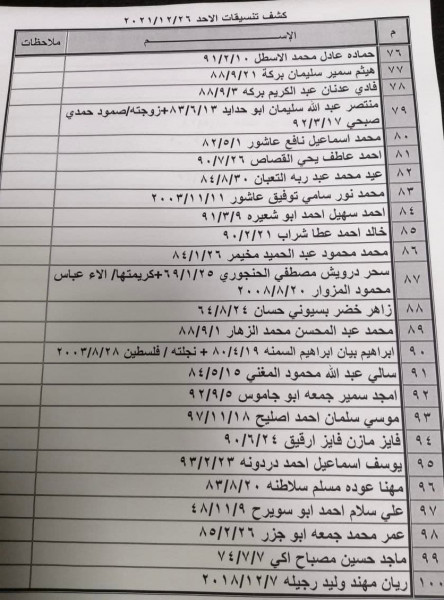 كشف تنسيقات الاحد ٢٠٢١/١٢/٢٦
م الإســـــم ملاحظات
٧٦ حماده عادل محمد الاسطل ٩١/٢/١٠
٧٧ هيثم سمير سليمان بركة ٨٨/٩/٢١
٧٨ فادي عدنان عبد الكريم بركه ٨٨/٩/٣
٧٩ منتصر عبد الله سليمان ابو حدايد ٨٣/٦/١٣+زوجته/صمود حمدي
صبحي ٩٢/٣/١٧
٨٠ محمد اسماعيل نافع عاشور ٨٢/٥/١
٨١ احمد عاطف يحي القصاص ٩٠/٧/٢٦
٨٢ عيد محمد عبد ربه التعبان ٨٤/٨/٣٠
٨٣ محمد نور سامي توفيق عاشور ٢٠٠٣/١١/١١
٨٤ احمد سهيل احمد ابو شعيره ٩١/٣/٩
٨٥ خالد احمد عطا شراب ٩٠/٢/٢١
٨٦ محمد محمود عبد الحميد مخيمر ٨٤/١/٢٦
٨٧ سحر درويش مصطفي الحنجوري ٦٩/١/٢٥+كريمتها/ الاء عباس
محمود المزوار ٢٠٠٨/٨/٢٠
٨٨ زاهر خضر بسيوني حسان ٦٤/٨/٢٤
٨٩ محمد عبد المحسن محمد الزهار ٨٨/٩/١
٩٠ ابراهيم بيان ابراهيم السمنه ٨٠/٤/١٩ + نجلته / فلسطين ٢٠٠٣/٨/٢٨
٩١ سالي عبد الله محمود المغني ٨٤/٥/١٥
٩٢ امجد سمير جمعه ابو جاموس ٩٢/٩/٥
٩٣ موسي سلمان احمد اصليح ٩٧/١١/١٨
٩٤ فايز مازن فايز ارقيق ٩٠/٦/٢٤
٩٥ يوسف اسماعيل احمد دردونه ٩٣/٢/٢٣
٩٦ مهنا عوده مسلم سلاطنه ٨٣/٨/٢٠
٩٧ علي سلام احمد ابو سويرح ٤٨/١١/٩
٩٨ عمر محمد جمعه ابو جزر ٨٥/٢/٢٦
٩٩ ماجد حسين مصباح اكي ٧٤/٧/٧
١٠٠ ريان مهند وليد رجيله ٢٠١٨/١٢/٧